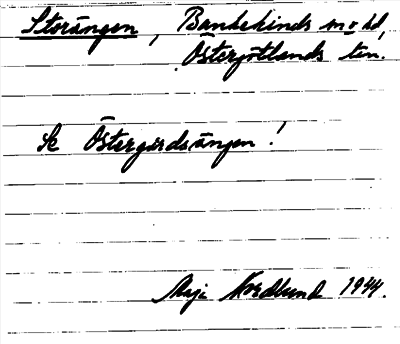 Storängen, Bankekinds sn o hd,
Östergötlands län.
Se Östergårdsängen!
Maja Nordlund 1944.